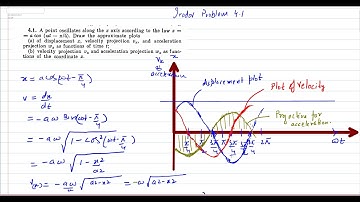 Irodov Problem 4.1
4.1. A point oscillates along the x axis according to the law x =
= a cos (ωt − π/4). Draw the approximate plots
(a) of displacement x, velocity projection vx, and acceleration
projection wx as functions of time t;
(b) velocity projection vx and acceleration projection wx as func-
tions of the coordinate x.
x = a cos(ωt − π/4)
v = dx/dt
= −aω Sin(ωt − π/4)
= −aω √1 − Cos²(ωt − π/4)
= −aω √1 − x²/a²
= −aω/a √a² − x² = −ω √a² − x²
Vx
x
acceleration
displacement plot
Plot of Velocity
Projection for
acceleration.
2π
ωt